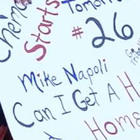 Chemo
Starts
Tomorrow
#26
Mike Napoli
Can I Get A H
Hom